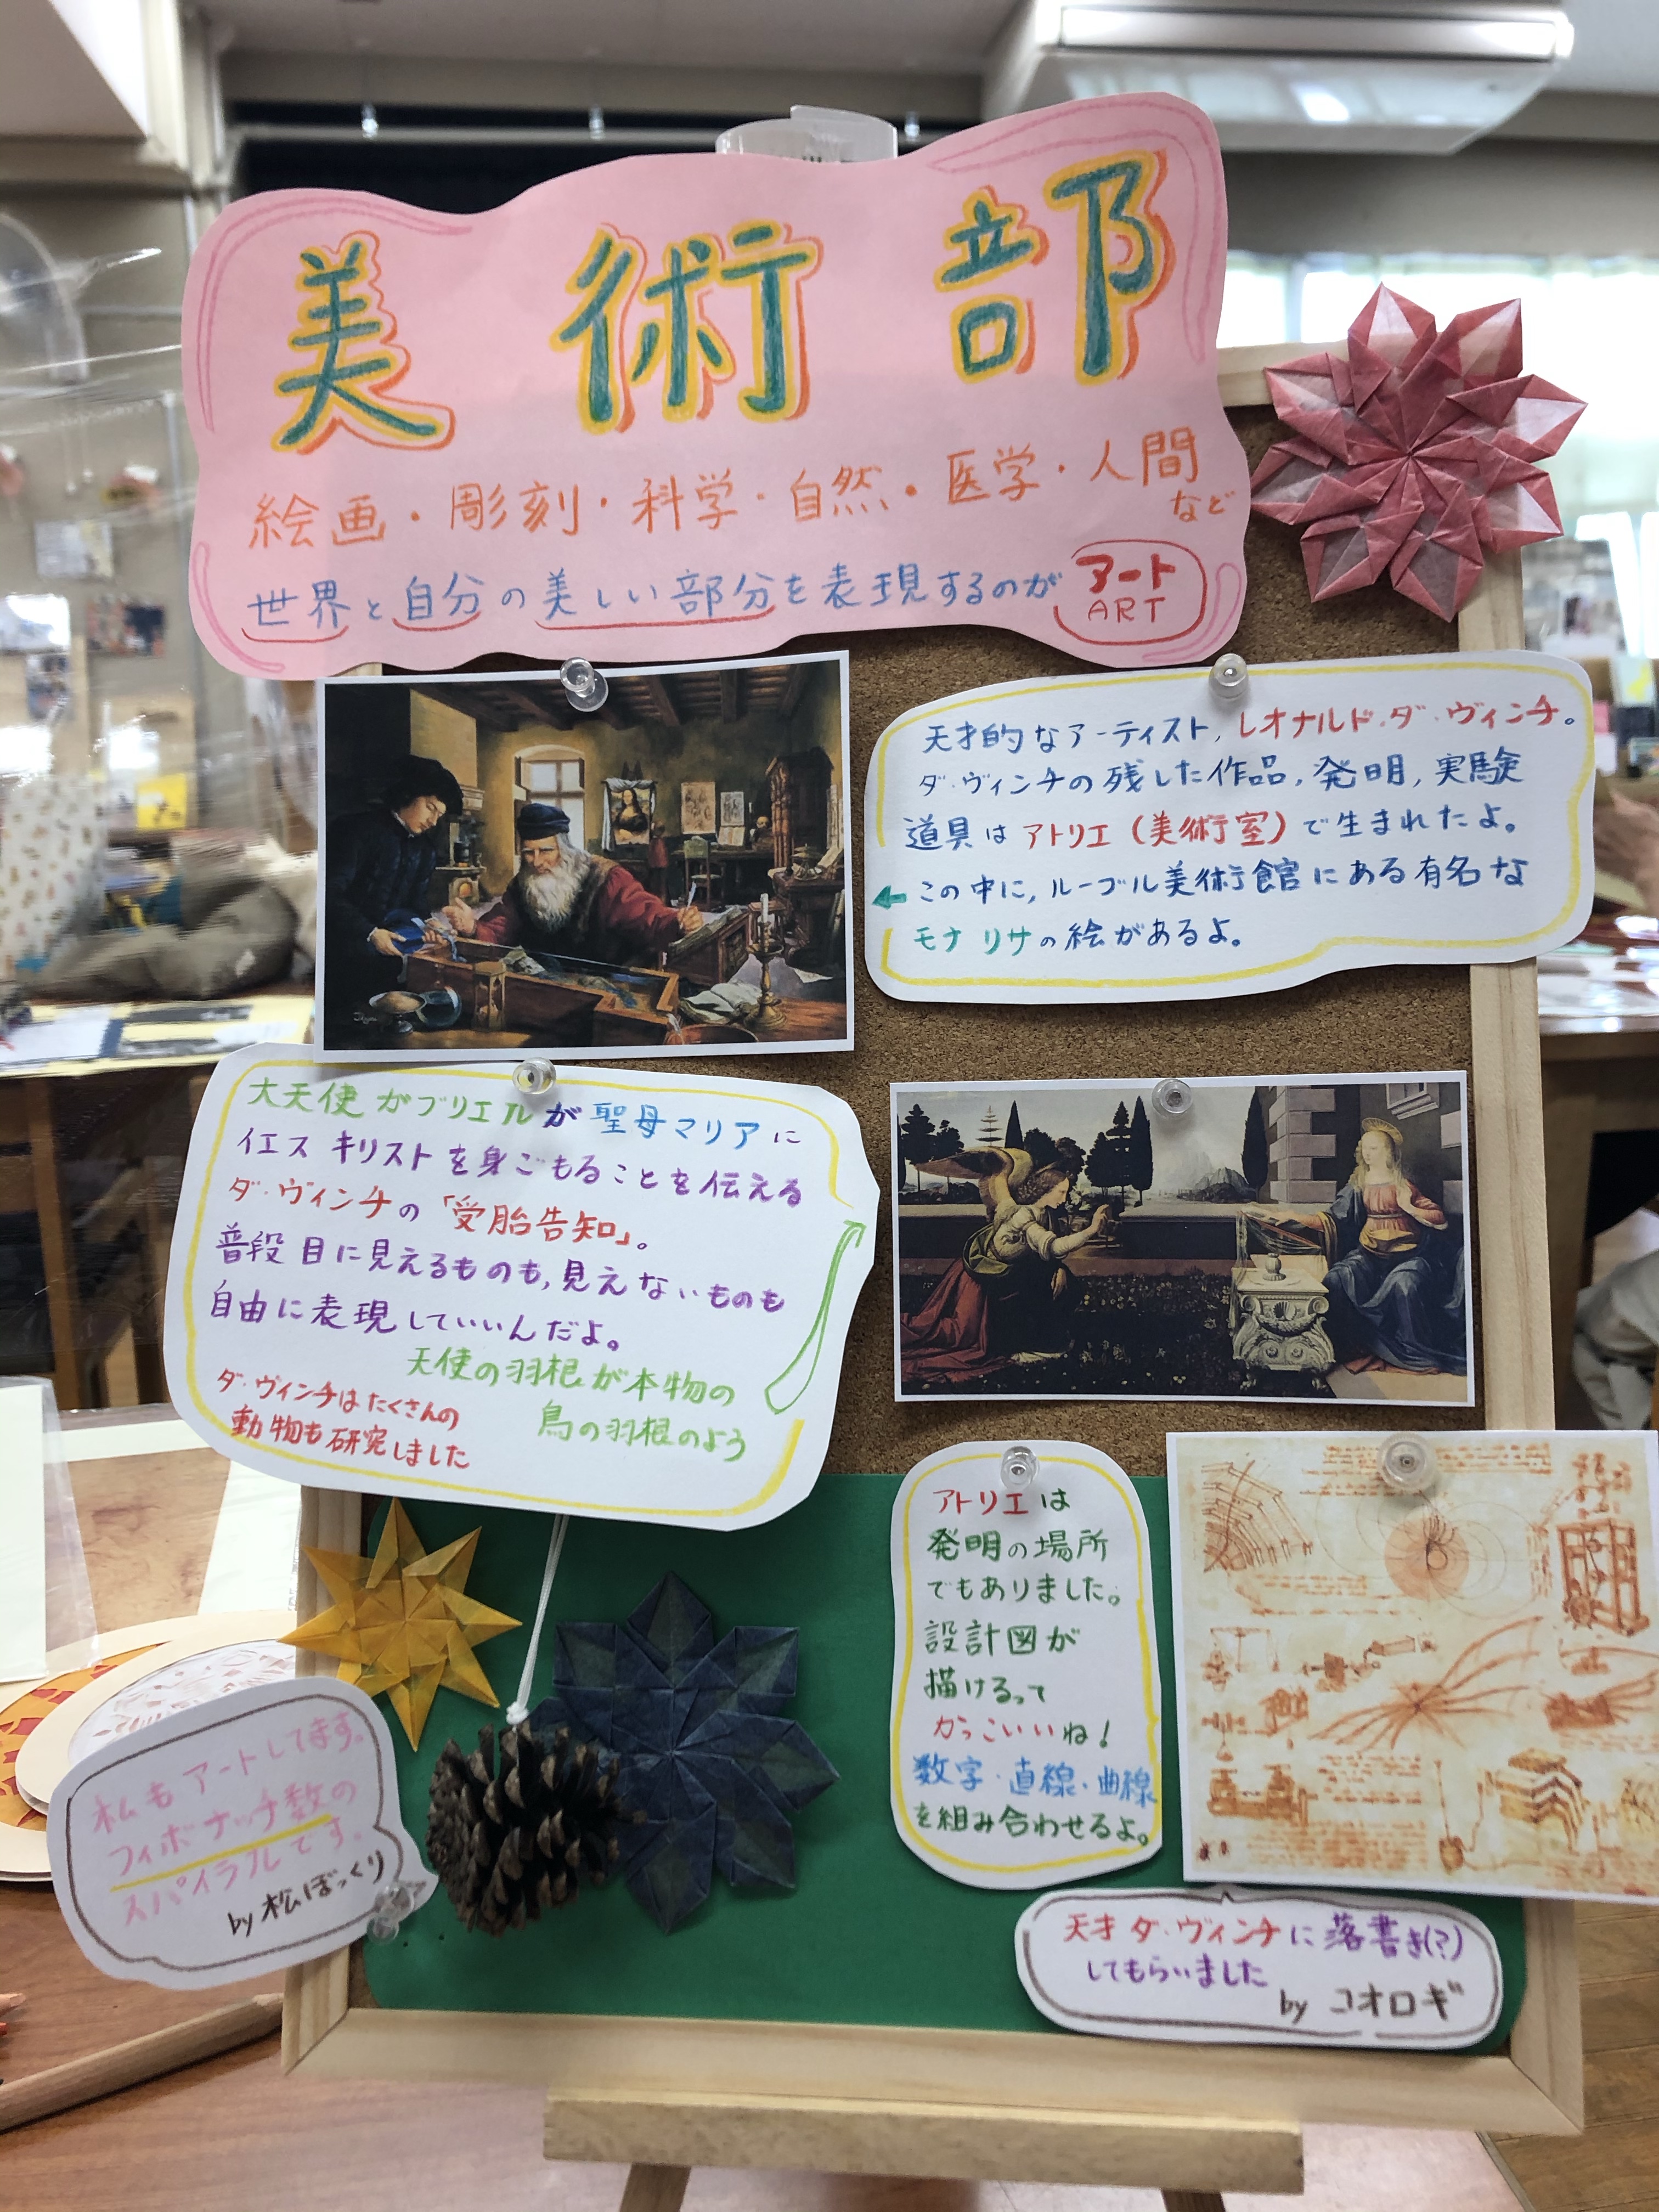 美術部
絵画・彫刻・科学・自然・医学・人間
など
世界と自分の美しい部分を表現するのが アート
ART
天才的なアーティスト, レオナルド・ダ・ヴィンチ。
ダ・ヴィンチの残した作品, 発明, 実験
道具は アトリエ (美術室) で生まれたよ。
この中に, ルーブル美術館にある有名な
モナ リサの絵があるよ。
大天使 ガブリエルが 聖母マリアに
イエス キリストを身ごもることを伝える
ダ・ヴィンチの「受胎告知」。
普段 目に見えるものも, 見えないものも
自由に表現していいんだよ。
天使の羽根が本物の
鳥の羽根のよう
ダ・ヴィンチはたくさんの
動物も研究しました
アトリエは
発明の場所
でもありました。
設計図が
描けるって
かっこいいね!
数字・直線・曲線
を組み合わせるよ。
私もアートしてます。
フィボナッチ数の
スパイラルです。
by 松ぼっくり
天才 ダ・ヴィンチに 落書き(?)
してもらいました
by コオロギ